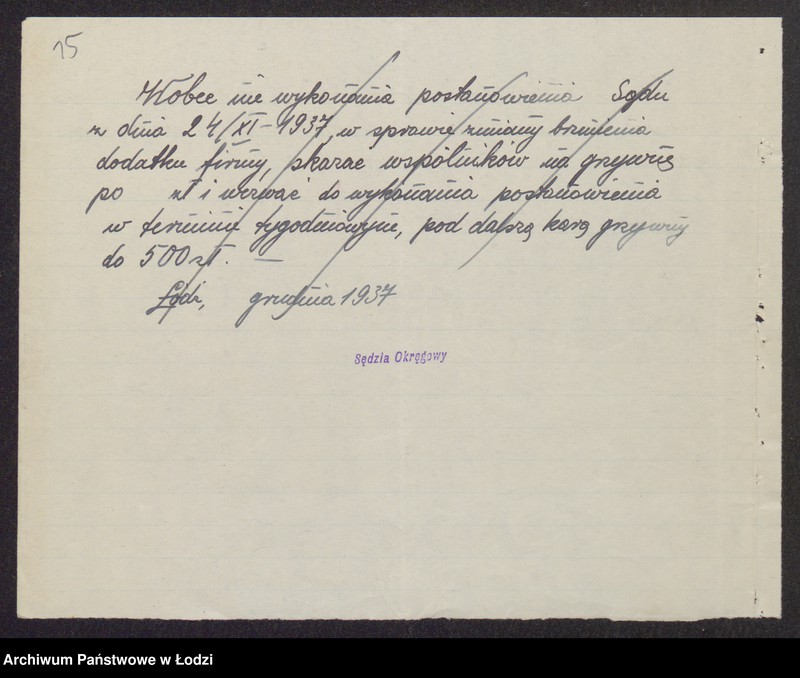 15
Wobec nie wykonania postanowienia Sądu
z dnia 24/XI-1937, w sprawie zmiany brzmienia
dodatku firmy, skazać wspólników na grzywnę
po zł i wezwać do wykonania postanowienia
w terminie tygodniowym, pod dalszą karą grzywny
do 500 zł. —
Łódź, grudnia 1937
Sędzia Okręgowy
Archiwum Państwowe w Łodzi